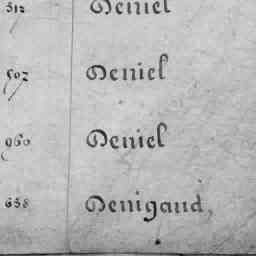 512 Deniel
507 Deniel
960 Deniel
658 Denigaud,